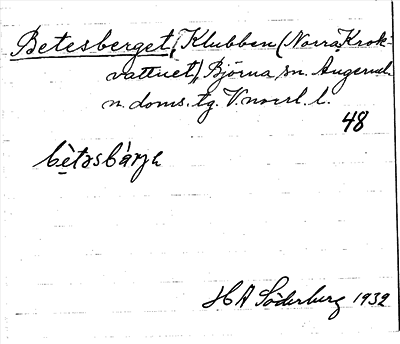 Betesberget, Klubben (Norra Krok-
vattnet), Björna sn. Ångerml.
n. doms. tg. V. norrl. l.
48
bètəsbàrjə
H A Söderberg 1932